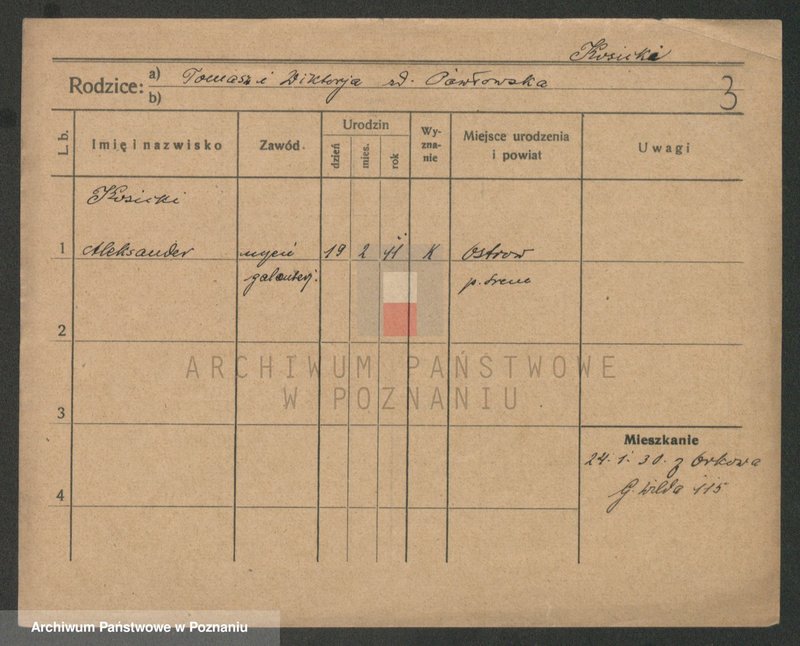 Kosicki
Rodzice: a) Tomasz i Wiktorja zd. Pawłowska
b)
3
L. b.
Imię i nazwisko
Zawód
Urodzin
dzień
mies.
rok
Wy-
zna-
nie
Miejsce urodzenia
i powiat
Uwagi
Kosicki
1 Aleksander 19 2 11 K Ostrow
galanterj. p. Śrem
2
ARCHIWUM PAŃSTWOWE
W POZNANIU
3
Mieszkanie
24.1.30. z Orkowa
4
G. Wilda 115
Archiwum Państwowe w Poznaniu